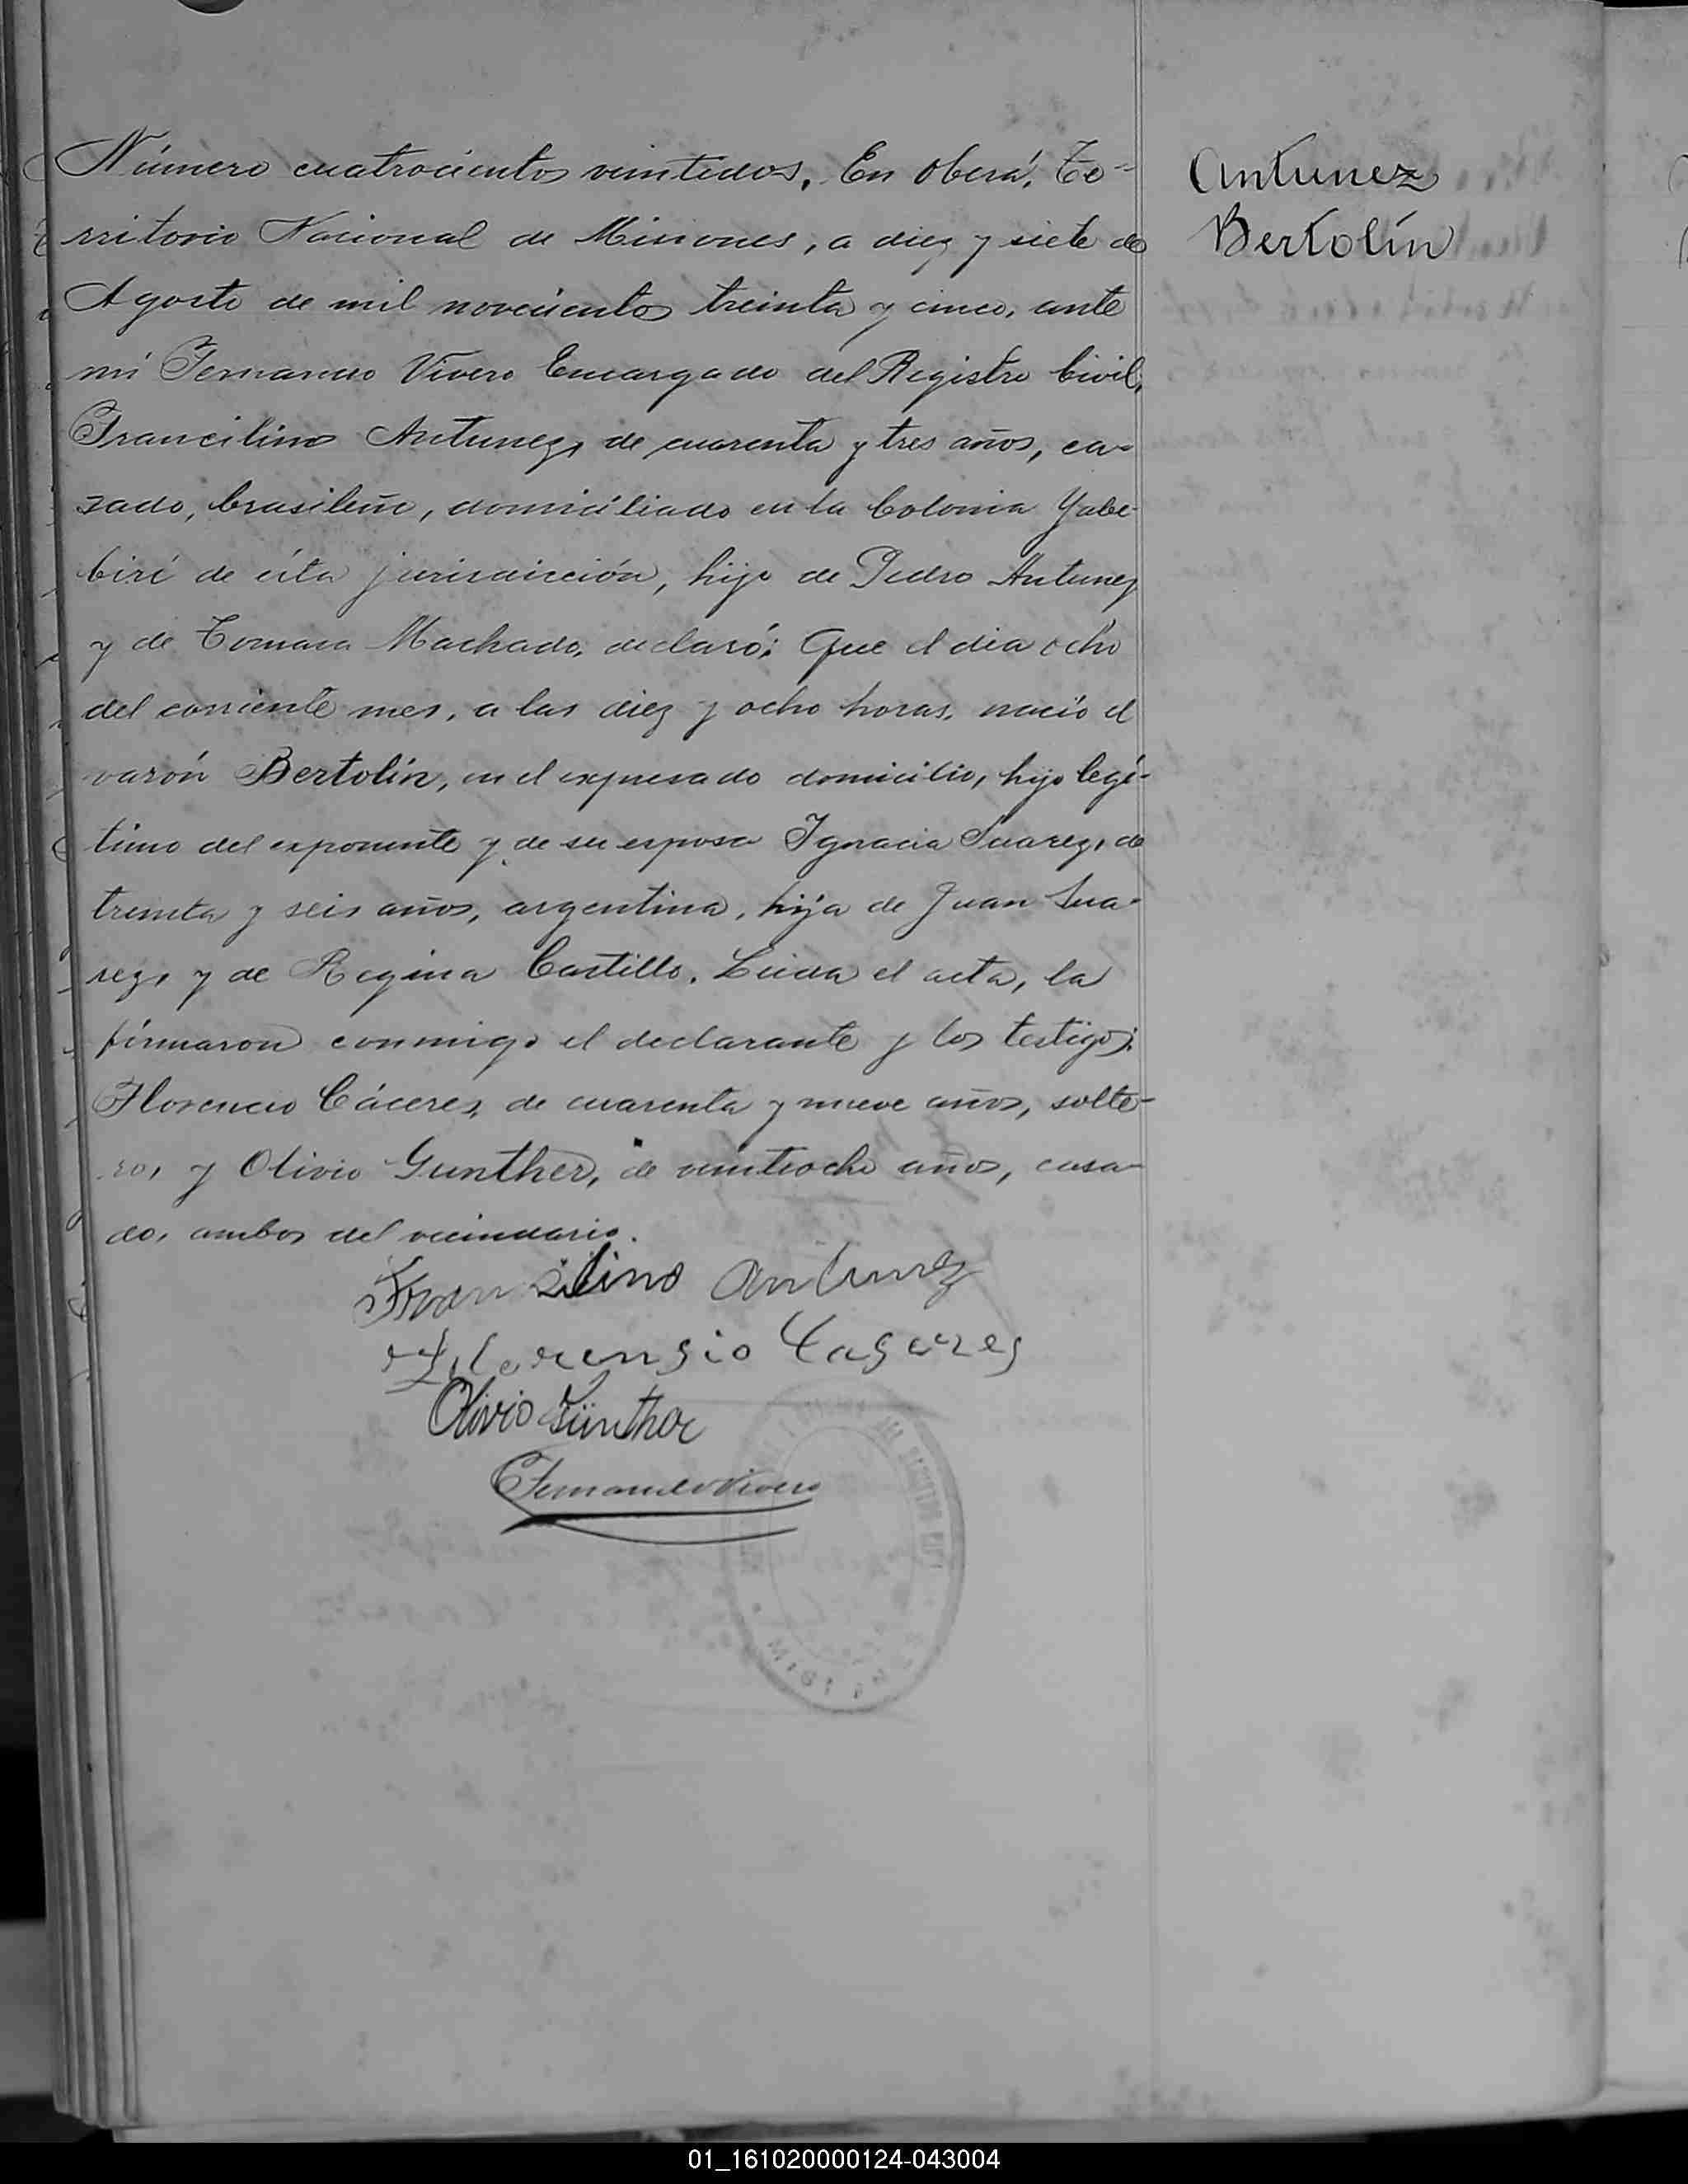 Número cuatrocientos veintidos. En Oberá, Te-
rritorio Nacional de Misiones, a diez y siete de
Agosto de mil novecientos treinta y cinco, ante
mi Fernando Vivero Encargado del Registro Civil,
Francilino Antunez, de cuarenta y tres años, ca-
sado, brasileño, domiciliado en la Colonia Yabe-
birí de ésta jurisdicción, hijo de Pedro Antunez
y de Tomasa Machado, declaró: Que el dia ocho
del corriente mes, a las diez y ocho horas, nació el
varón Bertolín, en el expresado domicilio, hijo legí-
timo del exponente y de su esposa Ignacia Suarez, de
treinta y seis años, argentina, hija de Juan Sua-
rez, y de Regina Castillo. Leída el acta, la
firmaron conmigo el declarante y los testigos:
Florencio Cáceres, de cuarenta y nueve años, solte-
ro, y Olivio Gunther, de veintiocho años, casa-
do, ambos del vecindario.
Antunez
Bertolín
Fransilino Antunez
Florensio Caseres
Olivio Günther
Fernando Vivero
01_161020000124-043004